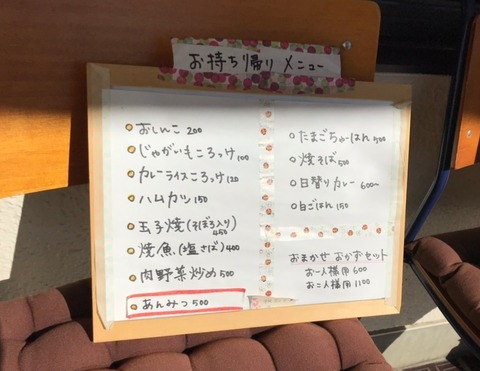 お持ち帰り メニュー
おしんこ 200
じゃがいもころっけ 100
カレーライスころっけ 120
ハムカツ 150
玉子焼(そぼろ入り)
450
焼魚(塩さば) 400
肉野菜炒め 500
あんみつ 500
たまごちゃーはん 500
焼そば 500
日替りカレー 600~
白ごはん 150
おまかせ おかずセット
お一人様用 600
お二人様用 1100